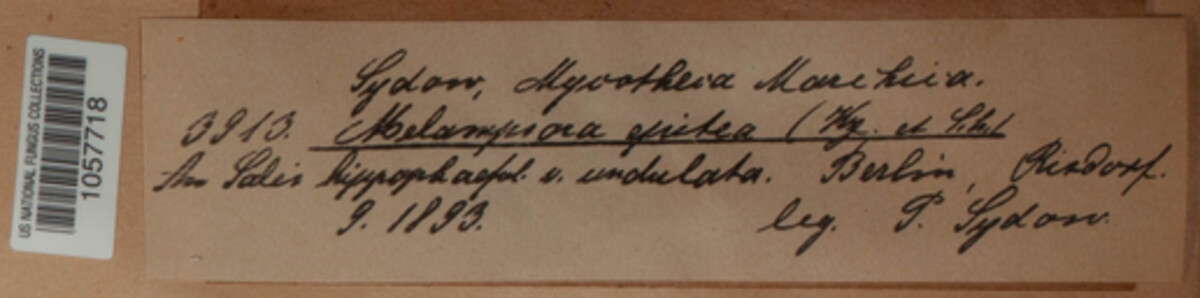 US NATIONAL FUNGUS COLLECTIONS
1057718
Sydow, Mycotheca Marchica.
3913. Melampsora epitea (Kze. et Schm.)
An Salix hippophaefol. v. undulata. Berlin, Rixdorf.
9. 1893. leg. P. Sydow.